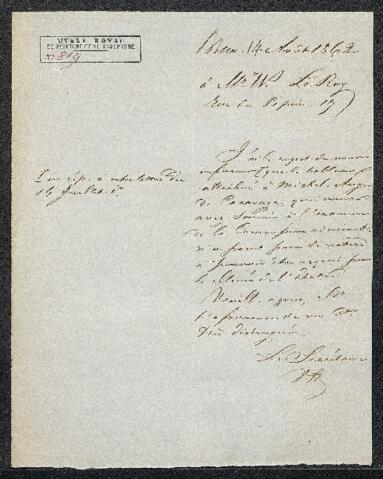 MUSÉE ROYAL
DE PEINTURE ET DE SCULPTURE
N° 819
14 Août 1862
à Mr W. Le Roy
Rue du
J'ai le regret de vous
informer que le tableau
attribué à Michel Ange
de Caravage, que vous
avez soumis à l'examen
de la Commission
n'a point paru de nature
à pouvoir être acquis pour
le Musée de l'Etat.
Veuill. agréer, Mr
l'expression de ma
distinguée.
Le Secrétaire
En rép. à votre lettre du
14 Juillet